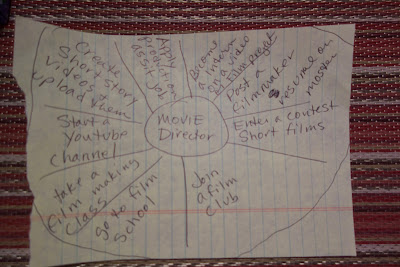 MOVIE
Director
Apply
production
assit job
Become
a intern
at a video
film project
Post a
filmmaker
resume on
Enter a contest
Short films
Join
a film
club
go to film
School
take a
film making
class
Start a
Youtube
channel
Create
Short story
videos
upload them